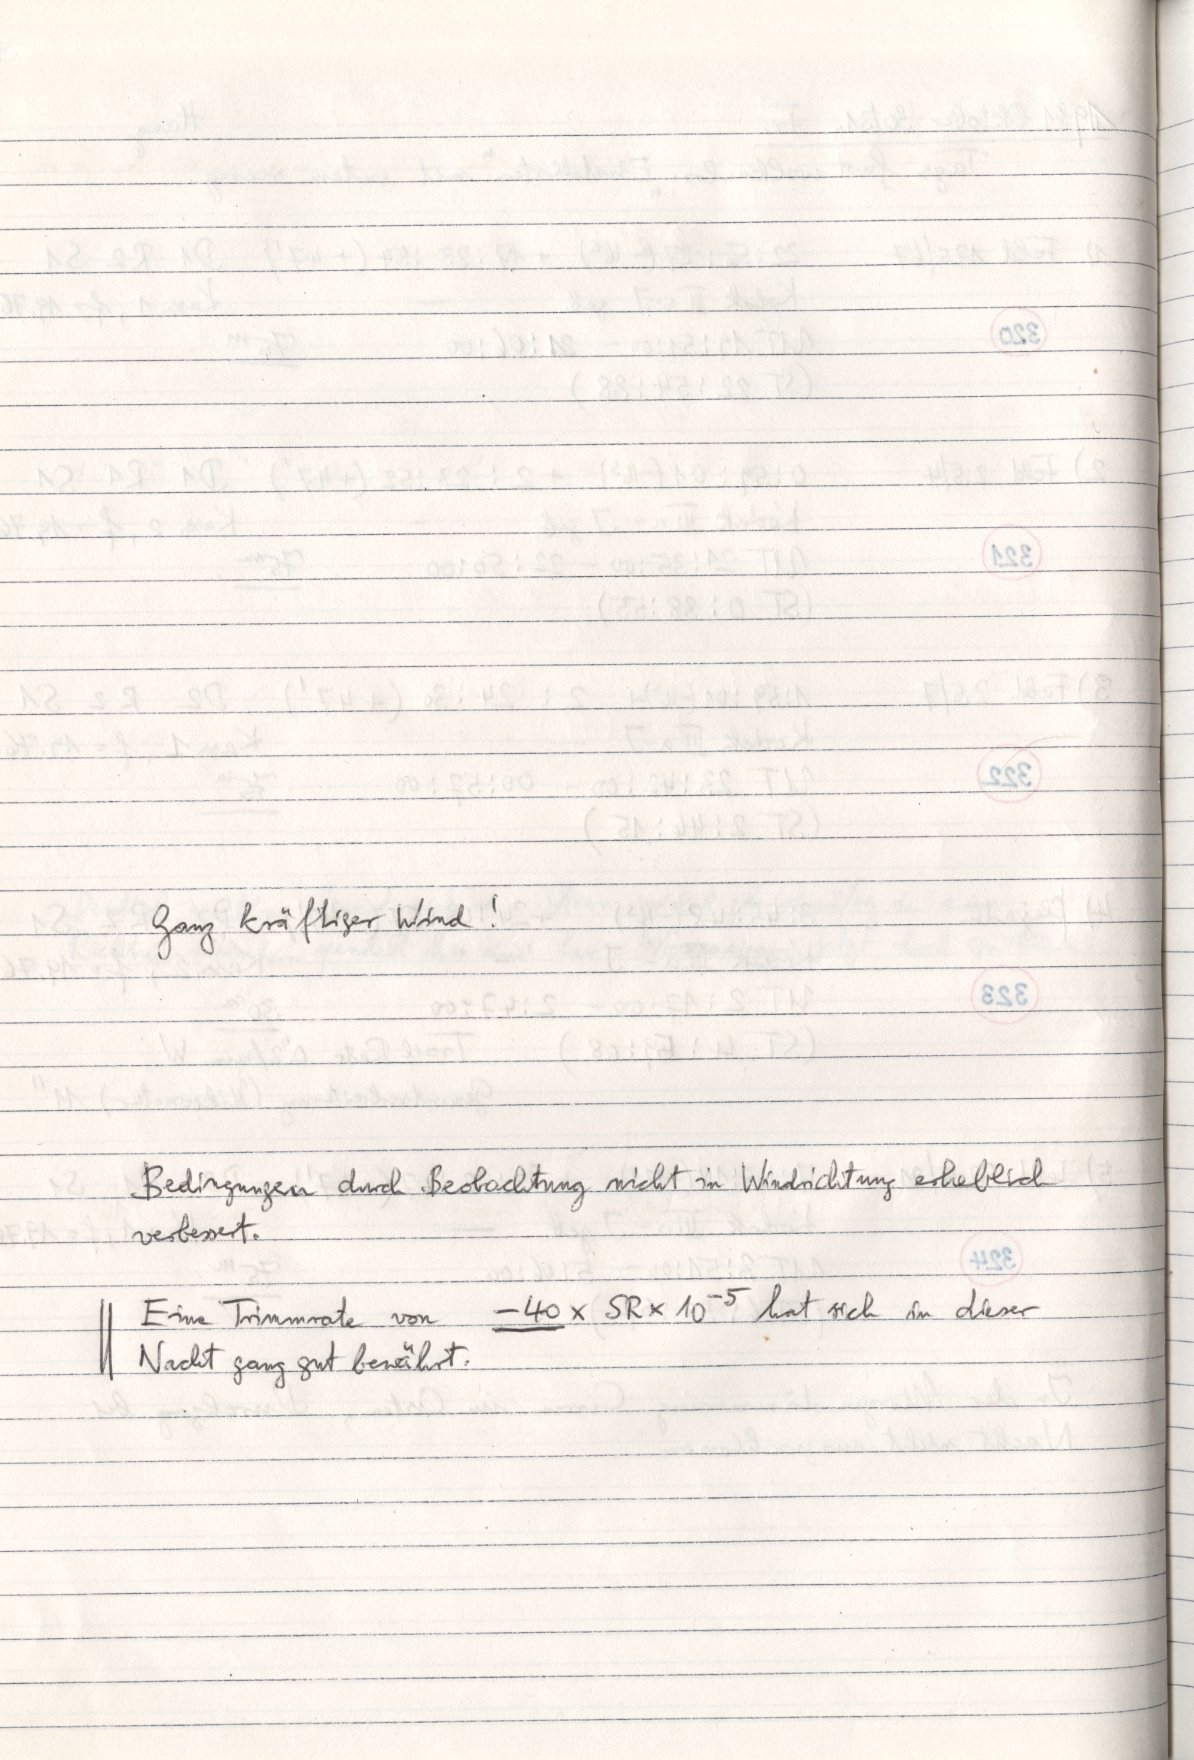 Ganz kräftiger Wind!
Bedingungen durch Beobachtung nicht in Windrichtung erheblich
verbessert.
Eine Trimmrate von -40 x SR x 10^-5 hat sich in dieser
Nacht ganz gut bewährt.